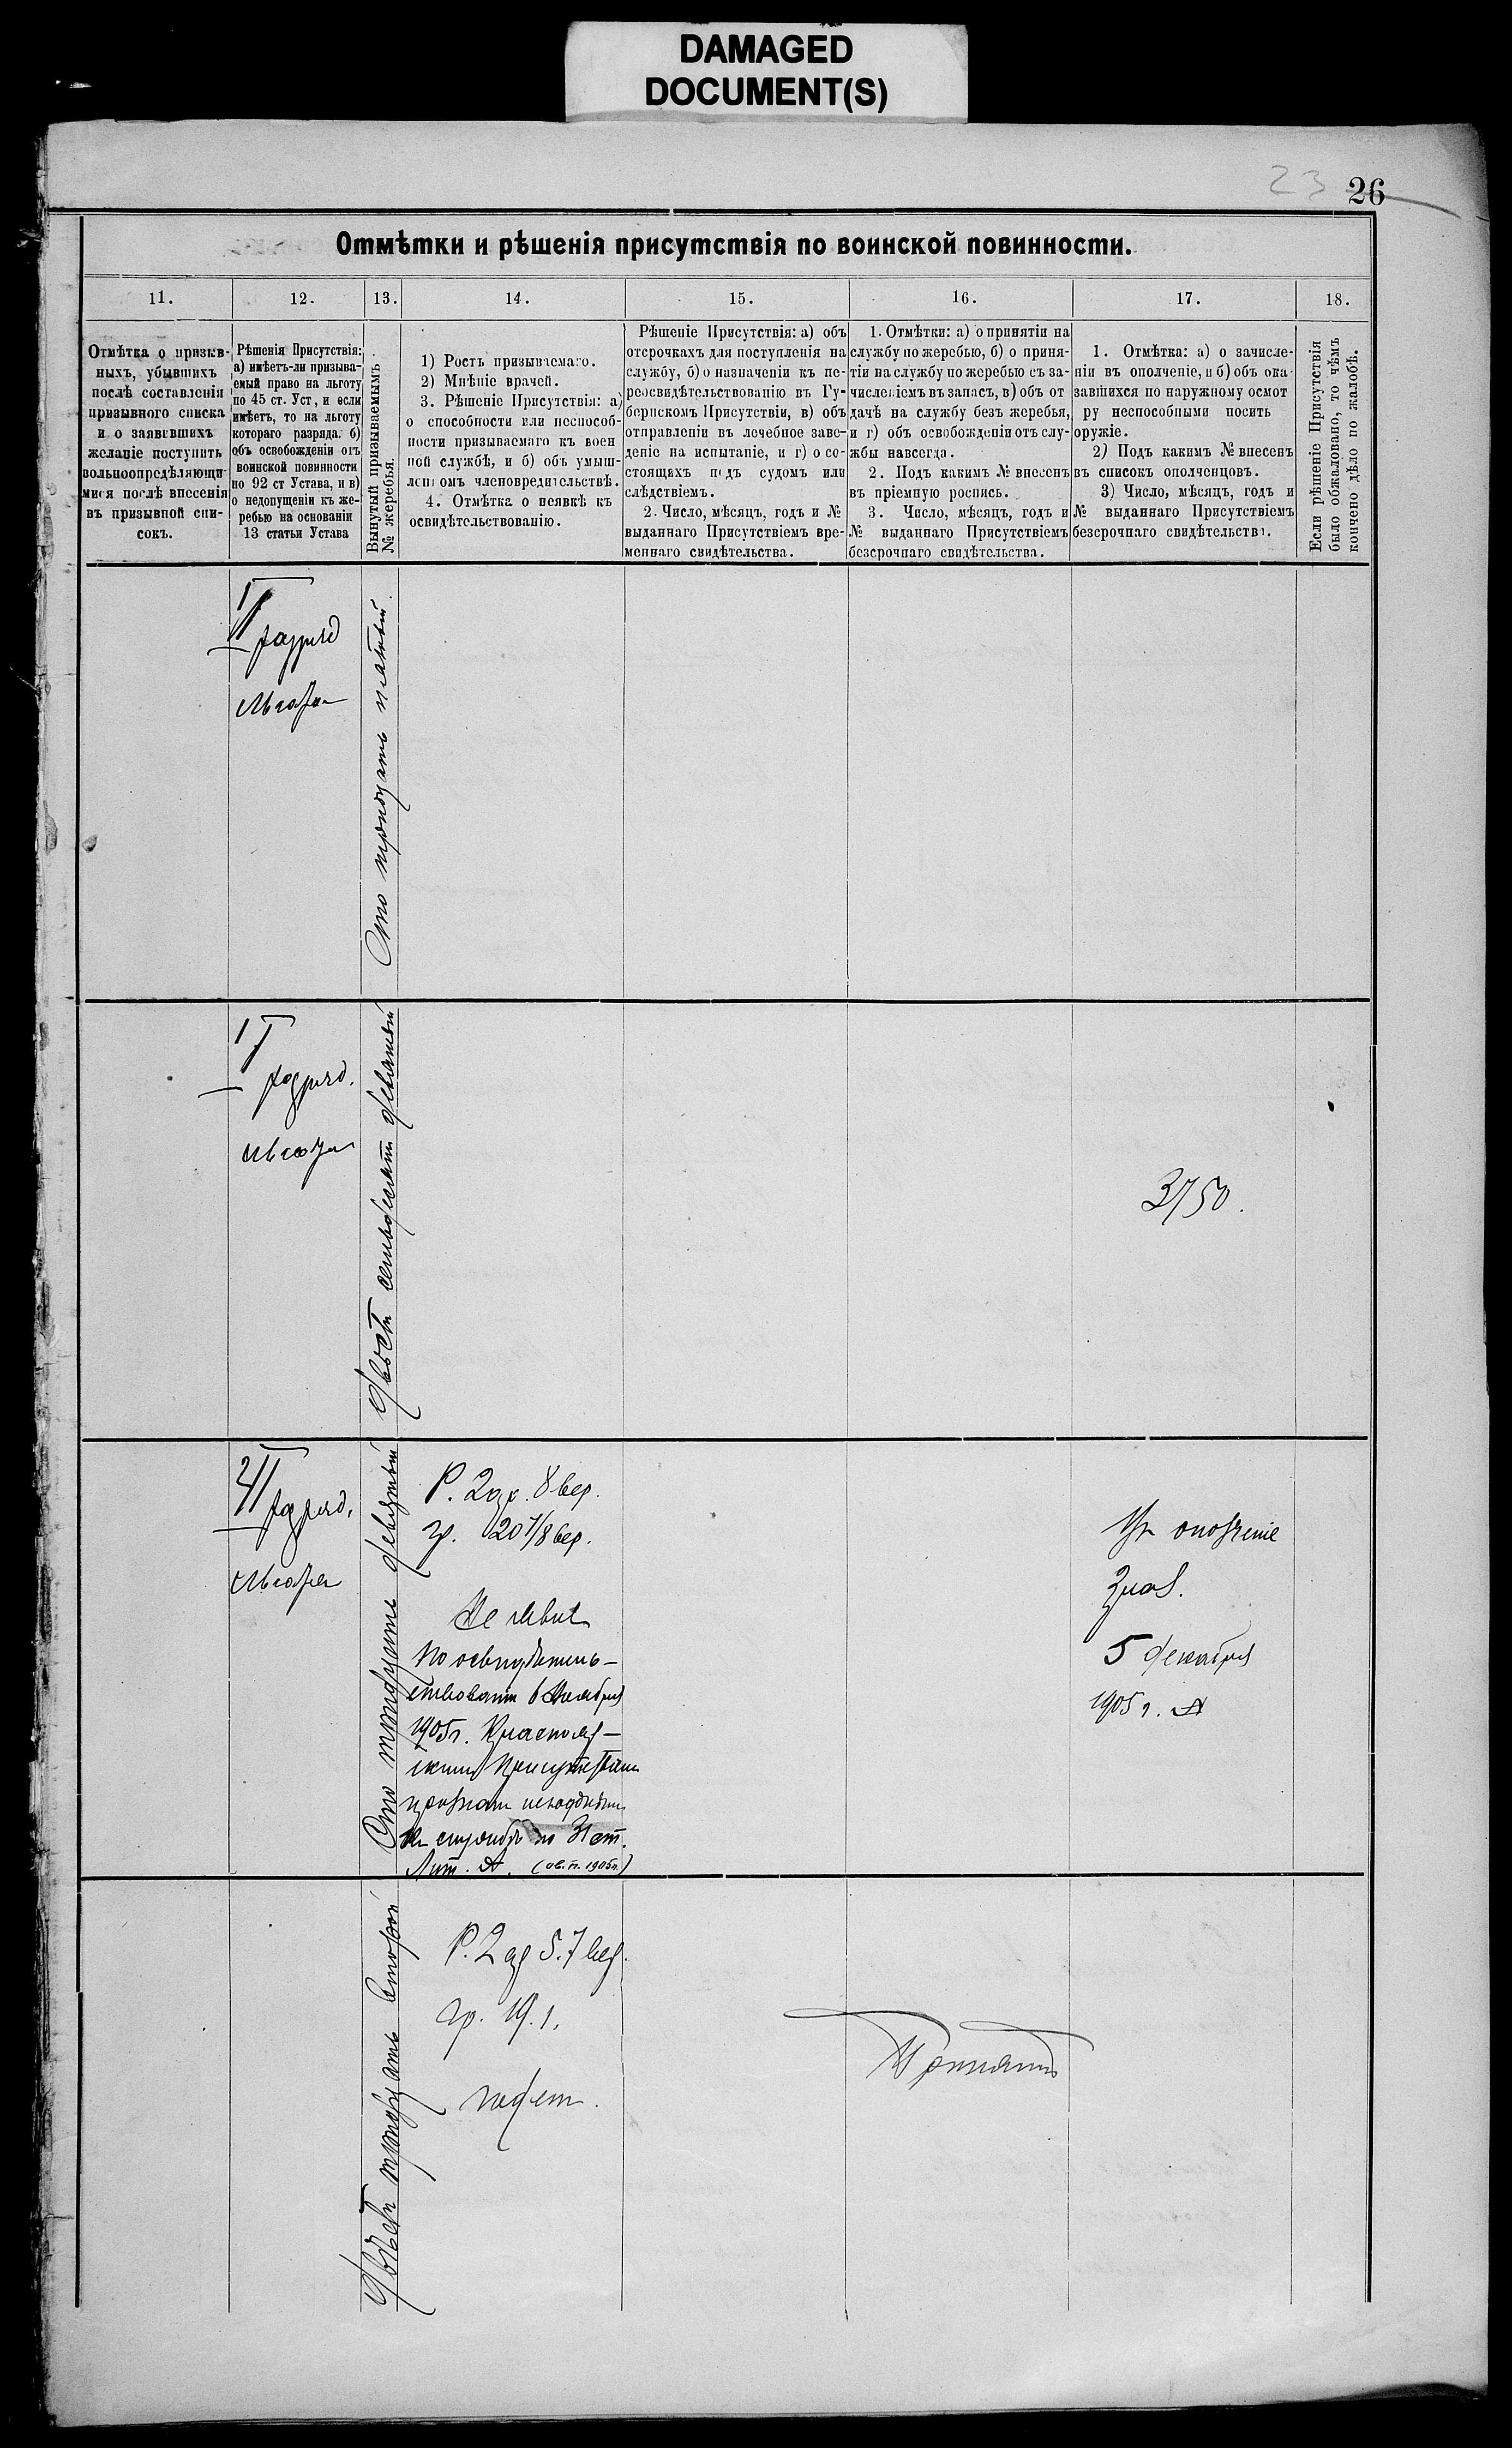 DAMAGED
DOCUMENT(S)
23 26
Отмѣтки и рѣшенія присутствія по воинской повинности.
11. 12. 13. 14. 15. 16. 17. 18.
Отмѣтка о призыв-
ныхъ, убывшихъ
послѣ составленія
призывного списка
и о заявившихъ
желаніе поступить
вольноопредѣляющи-
мися послѣ внесенія
въ призывной спи-
сокъ.
Рѣшенія Присутствія:
а) имѣетъ-ли призыва-
емый право на льготу
по 45 ст. Уст, и если
имѣетъ, то на льготу
котораго разряда. б)
объ освобожденіи отъ
воинской повинности
по 92 ст Устава, и в)
о недопущеніи къ же-
ребью на основаніи
13 статьи Устава
Вынутый призываемымъ
№ жеребья.
1) Ростъ призываемаго.
2) Мнѣніе врачей.
3. Рѣшеніе Присутствія: а)
о способности или неспособ-
ности призываемаго къ воен
ной службѣ, и б) объ умыш-
ленномъ членовредительствѣ.
4. Отмѣтка о неявкѣ къ
освидѣтельствованію.
Рѣшеніе Присутствія: а) объ
отсрочкахъ для поступленія на
службу, б) о назначеніи къ пе-
реосвидѣтельствованію въ Гу-
бернскомъ Присутствіи, в) объ
отправленіи въ лечебное заве-
деніе на испытаніе, и г) о со-
стоящахъ подъ судомъ или
слѣдствіемъ.
2. Число, мѣсяцъ, годъ и №
выданнаго Присутствіемъ вре-
меннаго свидѣтельства.
1. Отмѣтки: а) о принятіи на
службу по жеребью, б) о приня-
тіи на службу по жеребью съ за-
численіемъ въ запасъ, в) объ от
дачѣ на службу безъ жеребья,
и г) объ освобожденіи отъ слу-
жбы навсегда.
2. Подъ какимъ № внесенъ
въ пріемную роспись.
3. Число, мѣсяцъ, годъ и
№ выданнаго Присутствіемъ
безсрочнаго свидѣтельства.
1. Отмѣтка: а) о зачисле-
ніи въ ополченіе, и б) объ ока-
завшихся по наружному осмот
ру неспособными носить
оружіе.
2) Подъ какимъ № внесенъ
въ списокъ ополченцовъ.
3) Число, мѣсяцъ, годъ и
№ выданнаго Присутствіемъ
безсрочнаго свидѣтельства.
Если рѣшеніе Присутствія
было обжаловано, то чѣмъ
кончено дѣло по жалобѣ.
I разряд
льготы
Сто тридцать пятый.
I разряд.
льготы
Двѣсти семьдесятъ девятый
3750.
II разряд.
льготы
Сто тридцать девятый
Р. 2 ар. 8 вер.
гр. 20 7/8 вер.
Не явил
По освидѣтель-
ствованіи 6 Ноября
1905 г.
Присутствіемъ
признан негоднымъ
къ службѣ по 31 ст.
Лит. А.
Въ ополченіе
5 декабря
1905 г.
Двѣсти тридцать второй
Р. 2 ар 5.7 вер.
гр. 19.1.
годен.
Принятъ